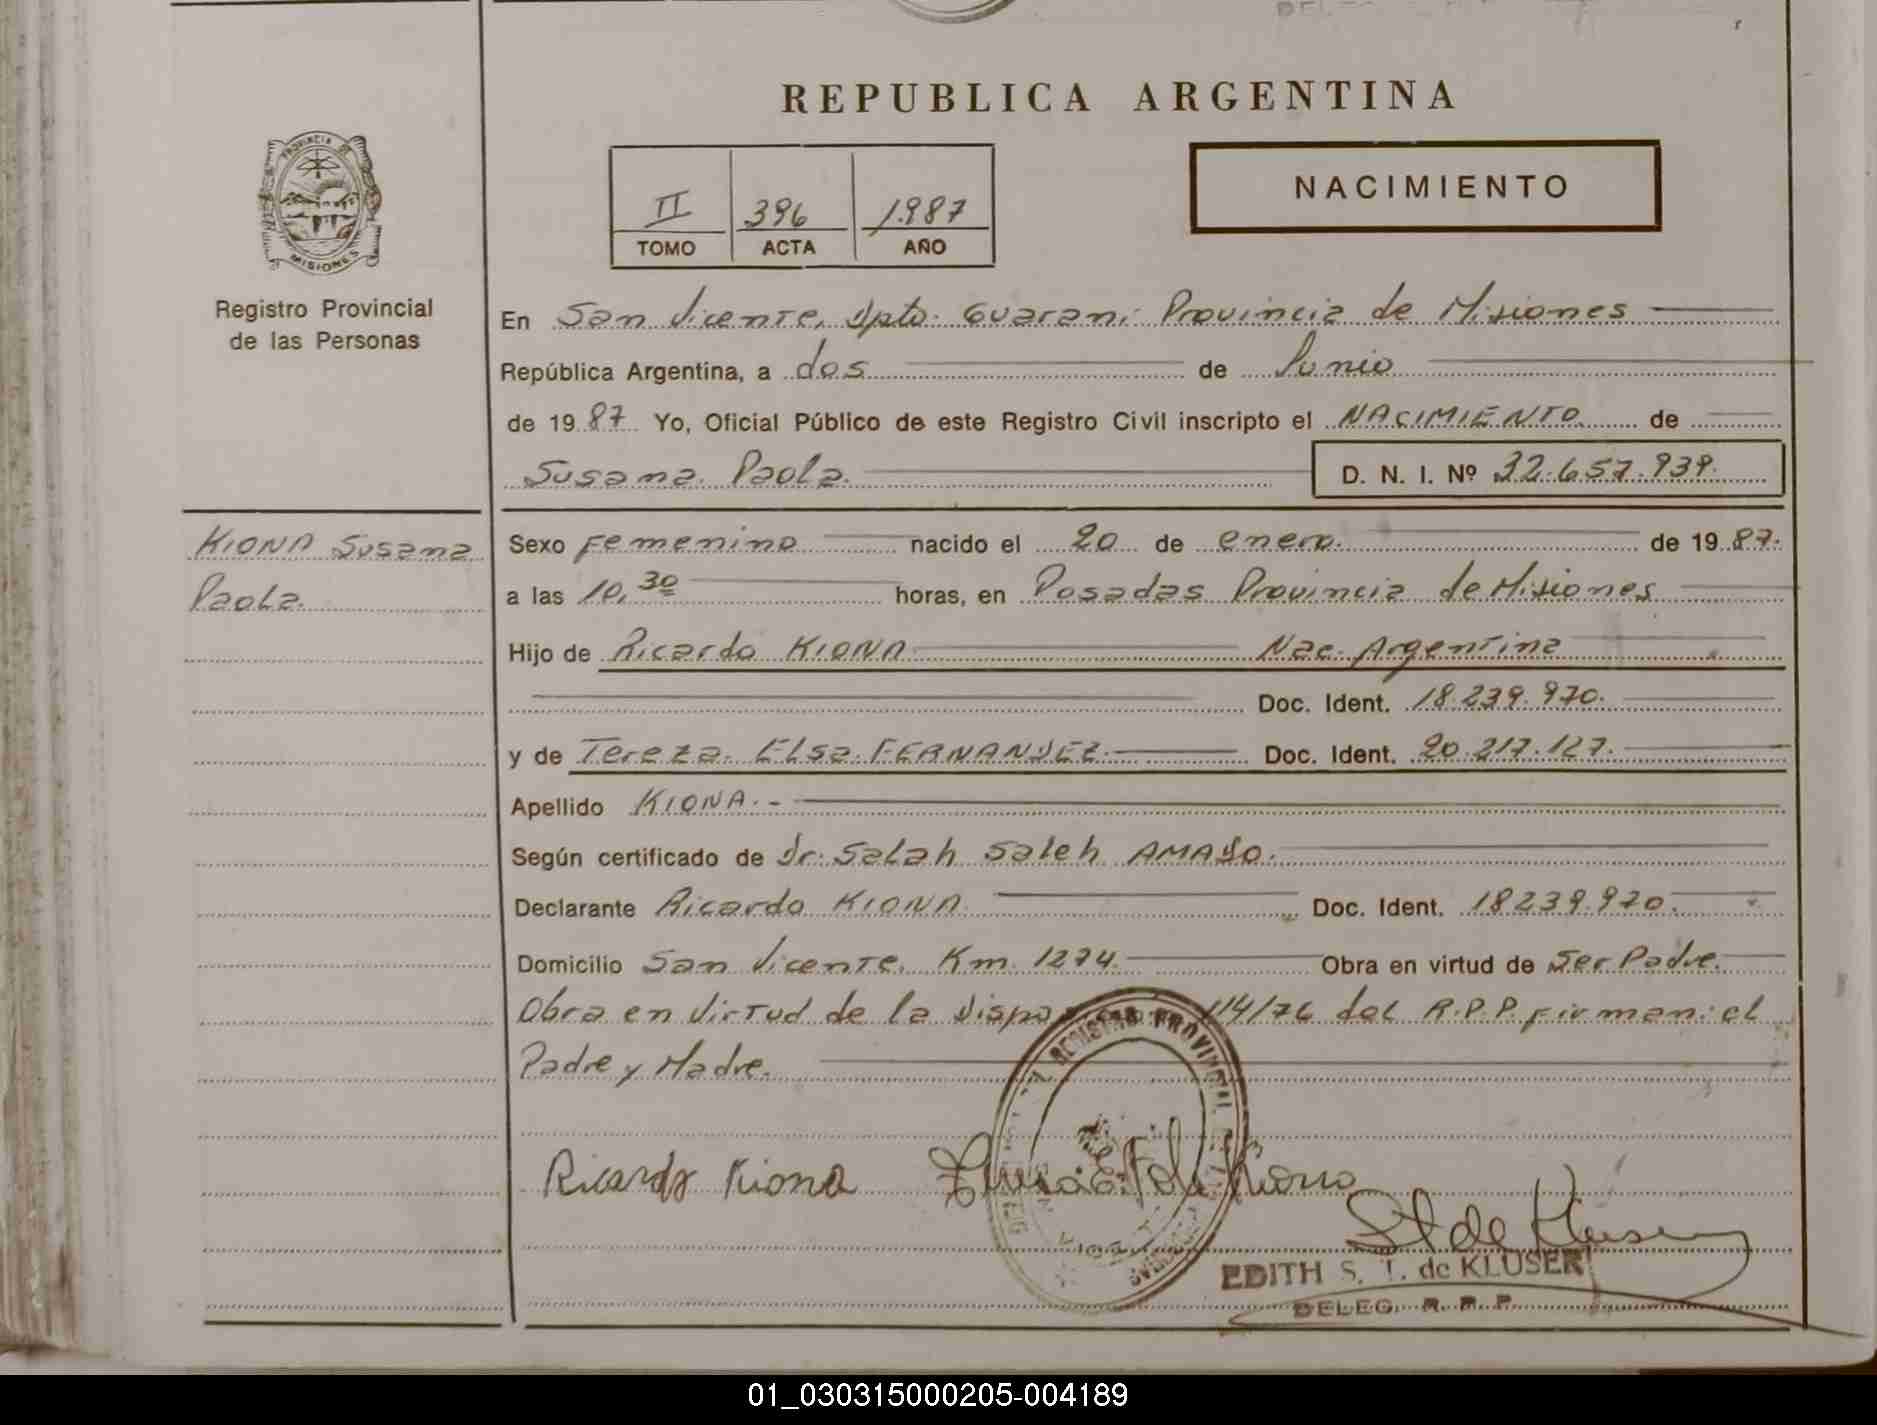 REPUBLICA ARGENTINA
PROVINCIA DE
MISIONES
Registro Provincial
de las Personas
II 396 1987
TOMO ACTA AÑO
NACIMIENTO
En San Vicente, Dpto. Guarani Provincia de Misiones
República Argentina, a dos de Junio
de 1987 Yo, Oficial Público de este Registro Civil inscripto el NACIMIENTO de
Susana Paola D. N. I. Nº 32.657.939.
KIONA Susana
Paola.
Sexo Femenino nacido el 20 de enero. de 1987.
a las 10,30 horas, en Posadas Provincia de Misiones
Hijo de Ricardo KIONA Nac. Argentina
Doc. Ident. 18.239.970.
y de Tereza Elsa FERNANDEZ. Doc. Ident. 20.217.127.
Apellido KIONA.-
Según certificado de Dr. Salah Saleh AMADO.
Declarante Ricardo KIONA Doc. Ident. 18239.970.
Domicilio San Vicente, Km. 1274. Obra en virtud de Ser Padre.
Obra en Virtud de la 114/76 del R.P.P. firman: el
Padre y Madre.
REGISTRO PROVINCIAL
Ricardo Kiona
St de Kluser
EDITH S. T. de KLUSER
DELEG. R. P. P.
01_030315000205-004189